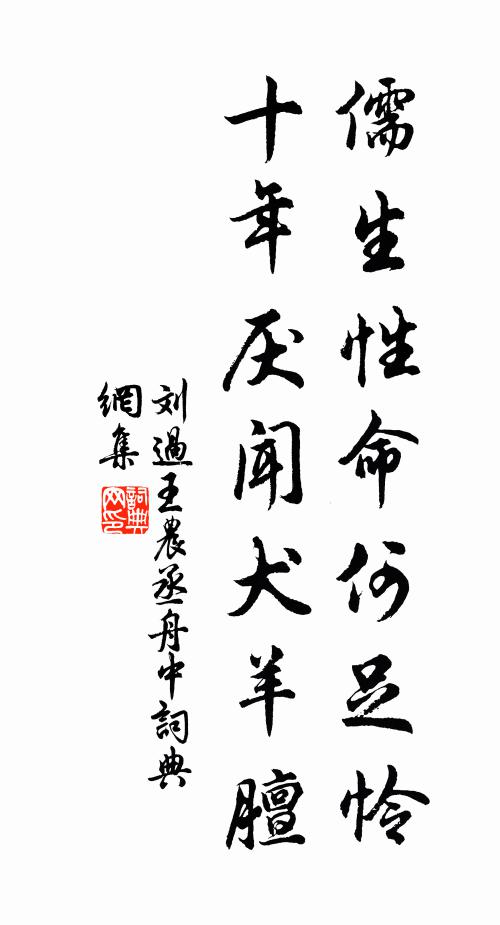 儒生性命何足怜
十年厌闻犬羊膻
刘過王農丞舟中詞典
網集
詞典网印